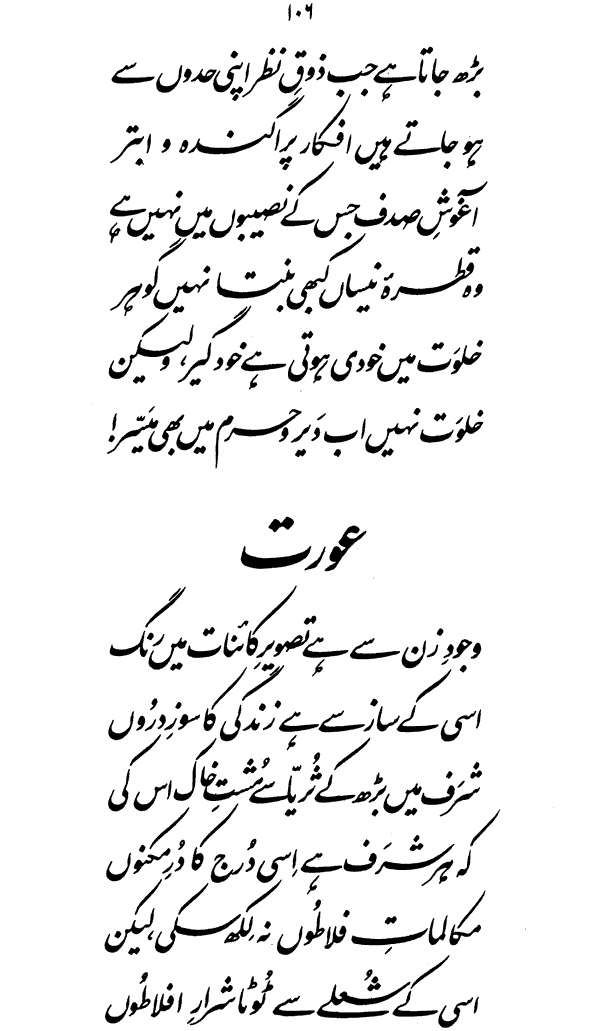 ۱۰۶
بڑھ جاتا ہے جب ذوقِ نظر اپنی حدوں سے
ہو جاتے ہیں افکار پراگندہ و ابتر
آغوشِ صدف جس کے نصیبوں میں نہیں ہے
وہ قطرۂ نیساں کبھی بنتا نہیں گوہر
خلوَت میں خودی ہوتی ہے خودگیر، ولیکن
خلوَت نہیں اب دَیر و حرم میں بھی میَسّر!
عورت
وجودِ زن سے ہے تصویرِ کائنات میں رنگ
اسی کے ساز سے ہے زندگی کا سوزِ درُوں
شرَف میں بڑھ کے ثُریّا سے مُشتِ خاک اس کی
کہ ہر شرَف ہے اِسی دُرج کا دُرِ مکنوں
مکالماتِ فلاطُوں نہ لِکھ سکی، لیکن
اسی کے شُعلے سے ٹُوٹا شرارِ افلاطُوں